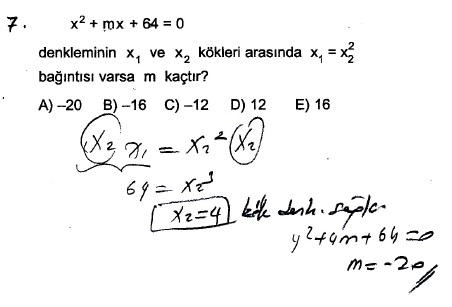 7.
x² + mx + 64 = 0
denkleminin x₁ ve x₂ kökleri arasında x₁ = x₂²
bağıntısı varsa m kaçtır?
A) –20 B) –16 C) –12 D) 12 E) 16
x₂ x₁ = x₂² (x₂)
64 = x₂³
x₂ = 4 kök denk. sağlar
4² + 4m + 64 = 0
m = -20